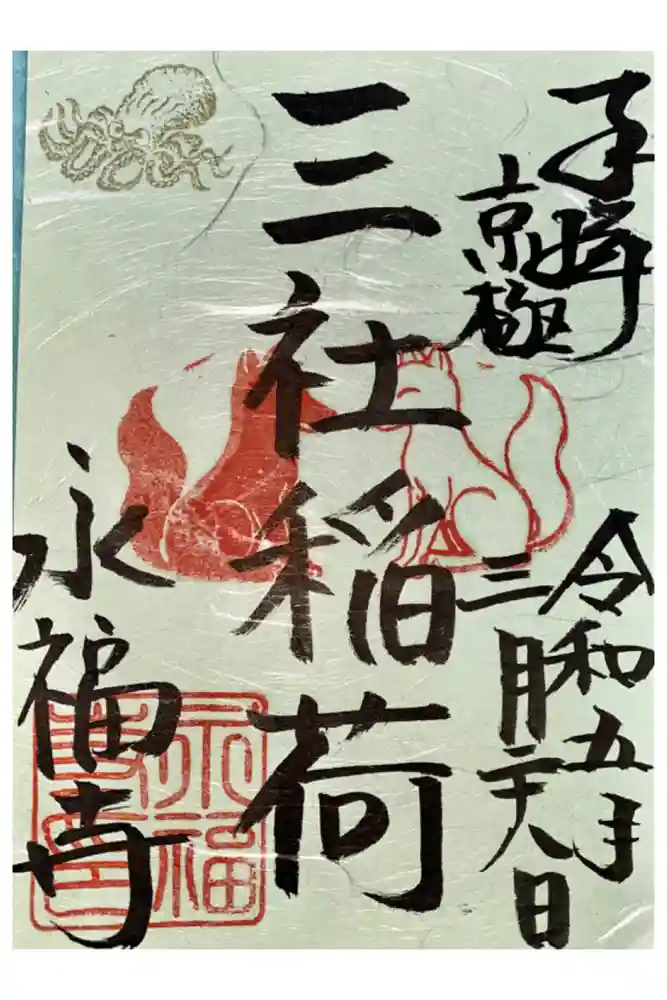 奉拝
京極
令和五年
三月二十八日
三社稲荷
永福寺
永福
寺印